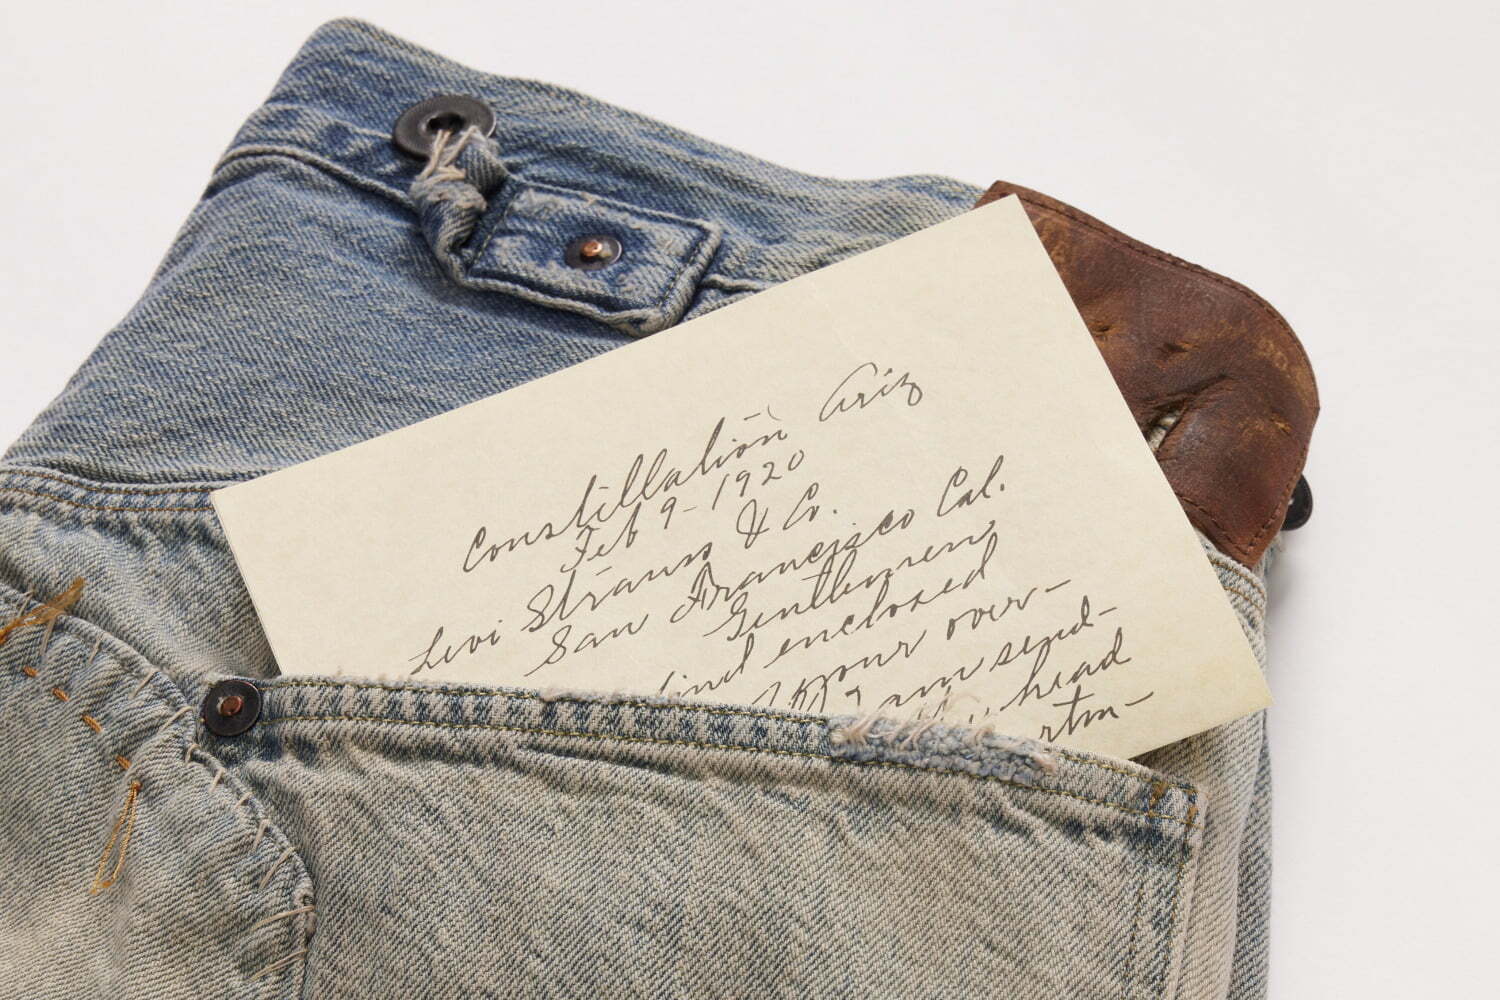 Constillation Ariz
Feb 9-1920
Levi Strauss & Co.
San Francisico Cal.
Gentlemen,
find enclosed
your over-
I am send-
head